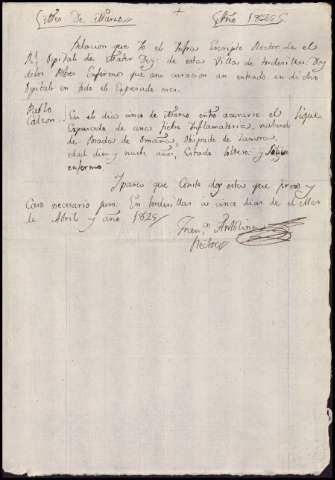 Mes de Marzo + Año 1825
Relacion que Yo el Infra Escripto Rector de el
Rl Ospital de Mater Dey de esta Villa de tordesillas Doy
delos Pobres Enfermos que a su curacion an entrado en dicho
Ospital en todo el Espresado mes.
Pablo
Calzon. En el dia uno de Marzo entro acurarse el Sigue
Espresado de una fiebre Inflamatoria, natural
de Posada de Omaña, Obispado de
edad diez y nuebe años, Estado Soltero y Sigue
enfermo.
Y para que Conste doy esta que firmo y
Caso necesario Juro. En tordesillas a cinco dias de el Mes
de Abril y año 1825
Franco. Antolino
Rector